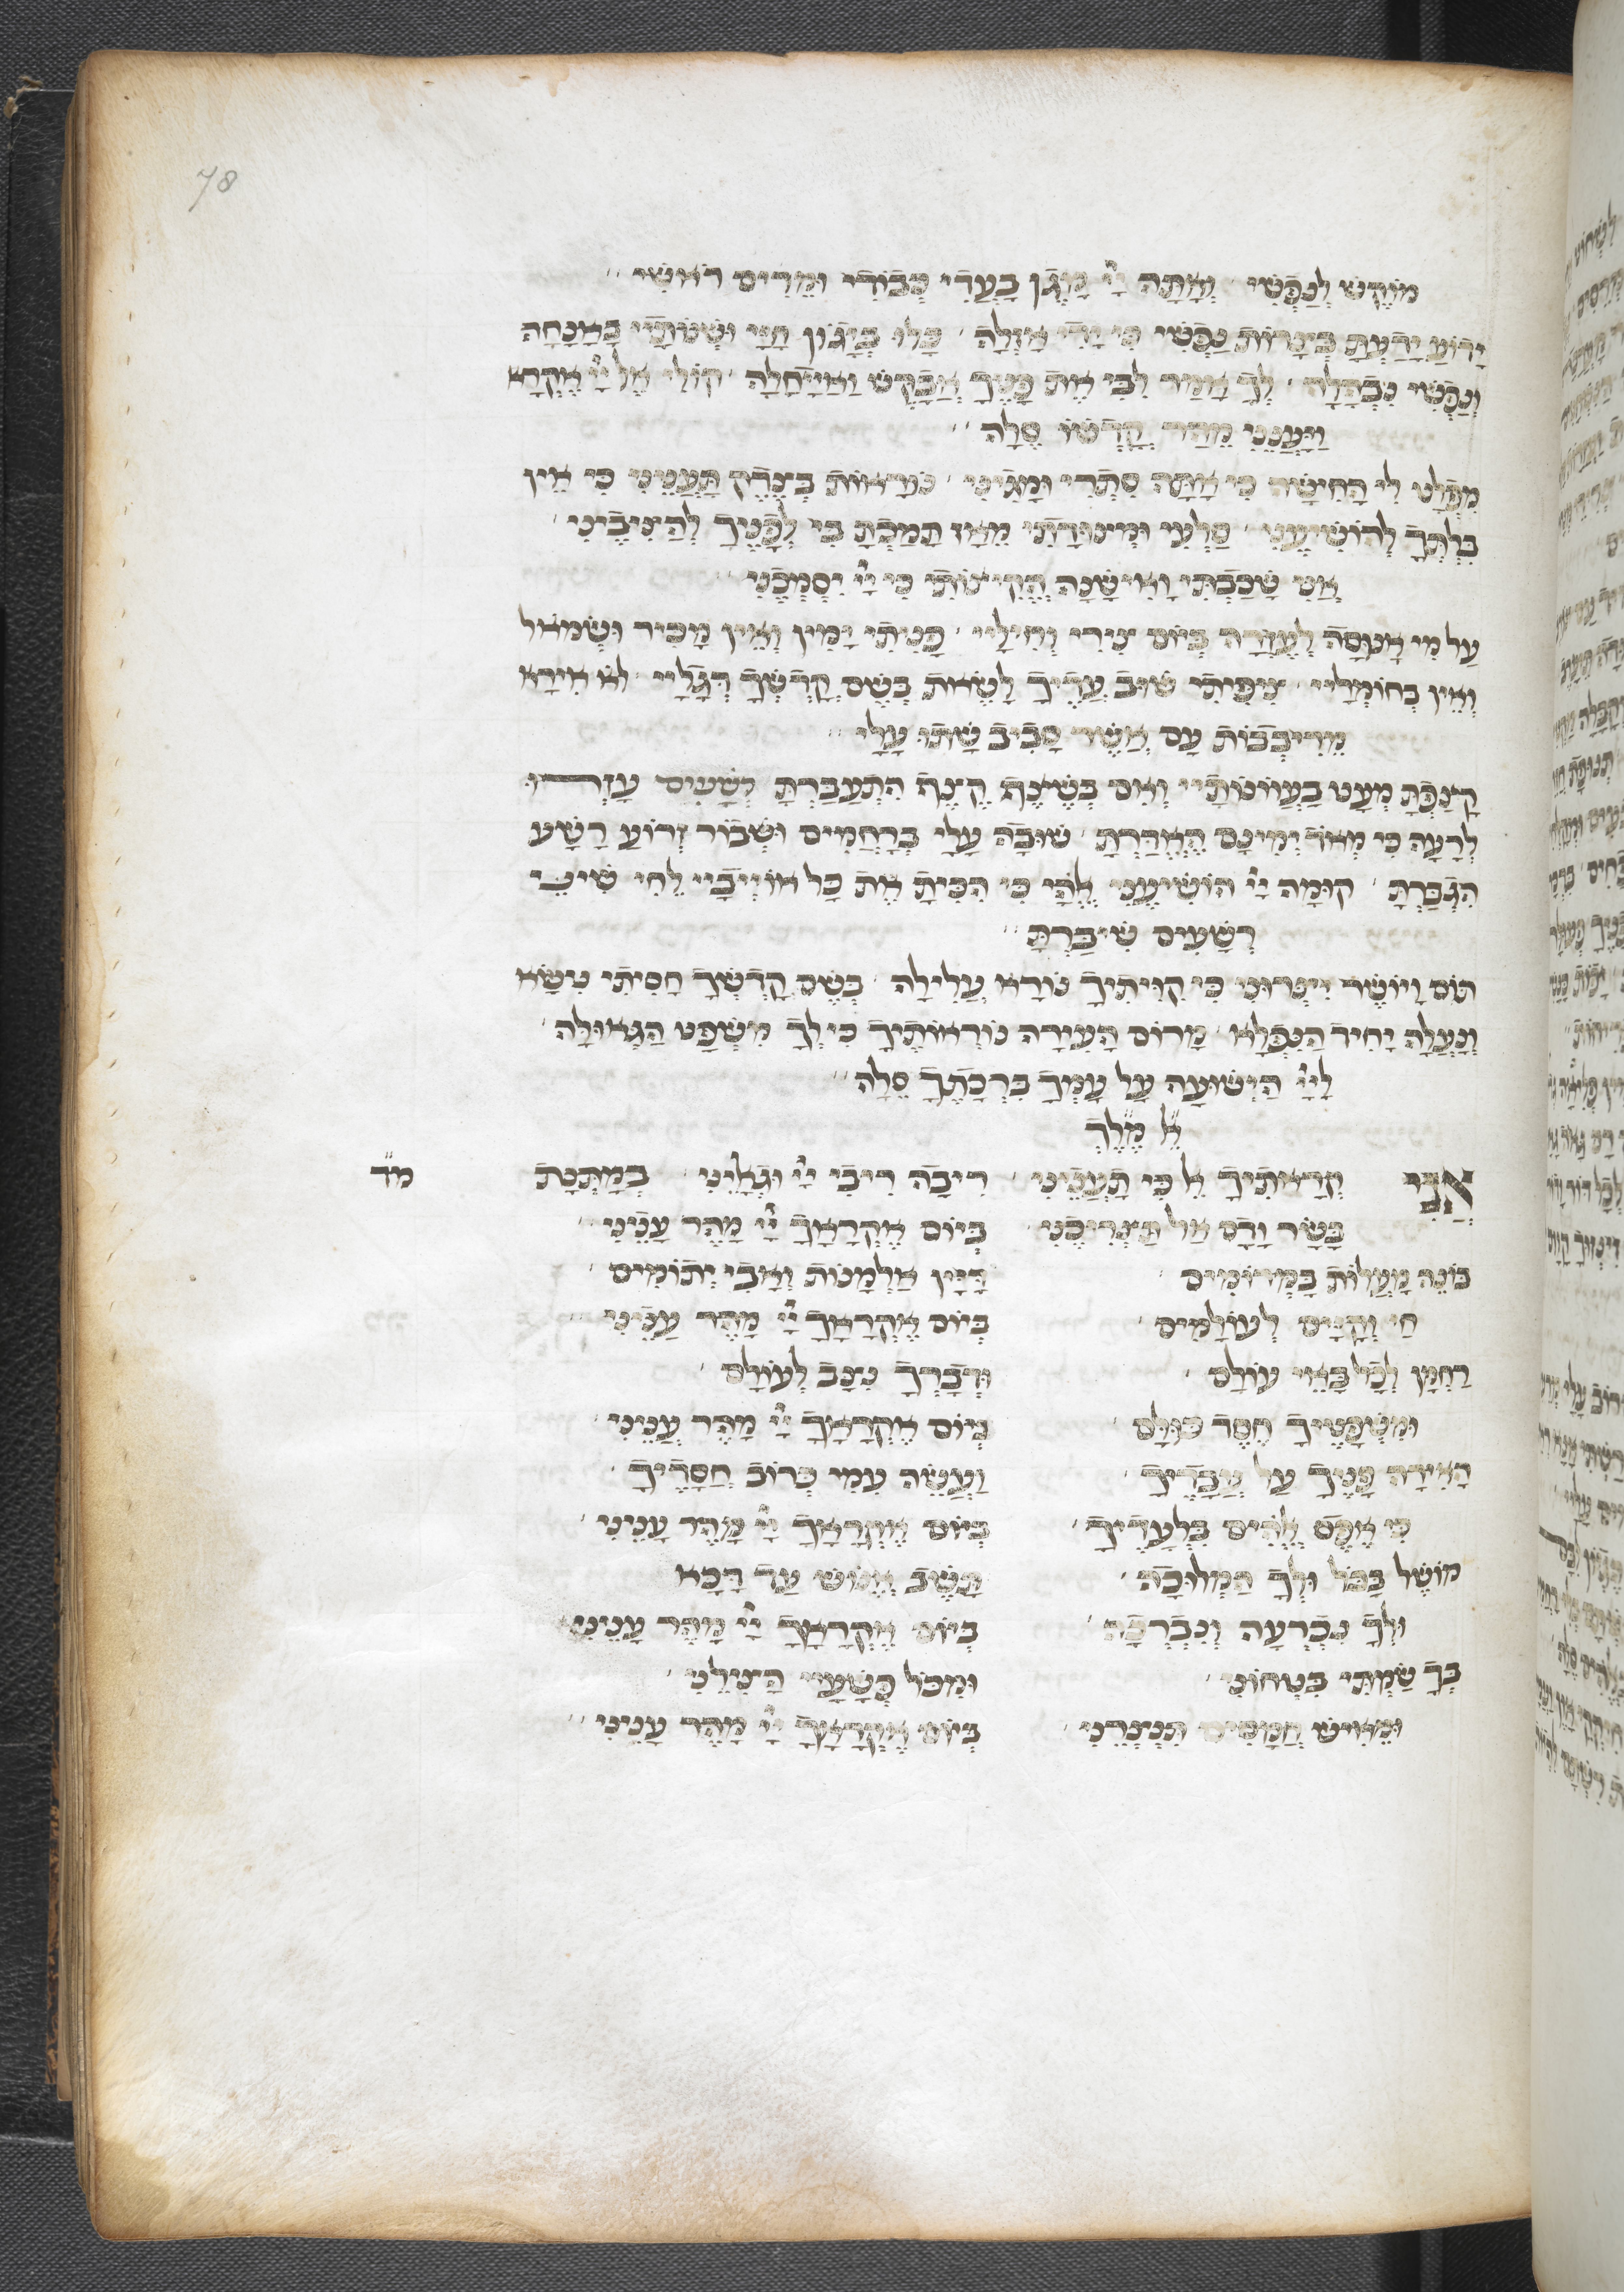 78
מוקש לנפשי׳ ואתה יי מגן בעדי כבודי ומרים ראשי׳׳
ידוע ידעת בצרות נפשי כי ידי אזלה׳ כלו ביגון חיי ושנותיי באנחה
ונפשי נבהלה׳ לך אמר לבי את פניך אבקש ואייחלה׳ קולי אל יי אקרא
ויענני מהר קדשו סלה׳׳
מפלט לי החישה כי אתה סתרי ומגיני׳ נוראות בצדק תענני כי אין
בלתך להושיעני׳ סלעי ומצודתי מאז תמכת בי לפניך להציבני׳
אני שכבתי ואישנה הקיצותי כי יי יסמכני׳׳
על מי אנוסה לעזרה ביום צירי וחילי׳ פניתי ימין ואין מכיר ושמאול
ואין בחומליי׳ צפיתי שוב עדיך לשאת בשם קדשך רגליי׳ לא אירא
מרבבות עם אשר סביב שתו עלי׳׳
קצפת מעט בעוונותיי ואם בשצף קצף התעברת רשעים עזרו
לרעה כי מאד ימינם האדרת׳ שובה עלי ברחמים ושבור זרוע רשע
הגברת׳ קומה יי הושיעני אלהי כי הכית את כל אוייביי לחי שיני
רשעים שיברת׳׳
תום ויושר יצרוני כי קויתיך נורא עלילה׳ בשם קדשך חסיתי נישא
ונעלה יחיד הנפלא׳ מרום העירה נוראותיך כי לך משפט הגאולה׳
ליי הישועה על עמך ברכתך סלה׳׳
אל מלך
אני קראתיך אל כי תענני׳ ריבה ריבי יי וגאלני׳ במתנת מד
בשר ודם אל תצריכני׳ ביום אקראך יי מהר ענני׳
בונה מעלות במרומים׳ דיין אלמנות ואבי יתומים׳
חי וקיים לעולמים׳ ביום אקראך יי מהר ענני׳׳
רחמן לכל באי עולם׳ ודברך ניצב לעולם׳
ומשפטיך חסד כולם׳ ביום אקראך יי מהר ענני׳
האירה פניך על עבדיך׳ ועשה עמי כרוב חסדיך׳
כי אפס אלהים בלעדיך׳ ביום אקראך יי מהר ענני׳
מושל בכל ולך המלוכה׳ תשב אנוש עד דכא
ולך נכרעה ונברכה׳ ביום אקראך יי מהר ענני׳
בך שמתי בטחוני׳ ומכל פשעיי הצילני׳
ומאיש חמסים תנצרני׳ ביום אקראך יי מהר ענני׳׳